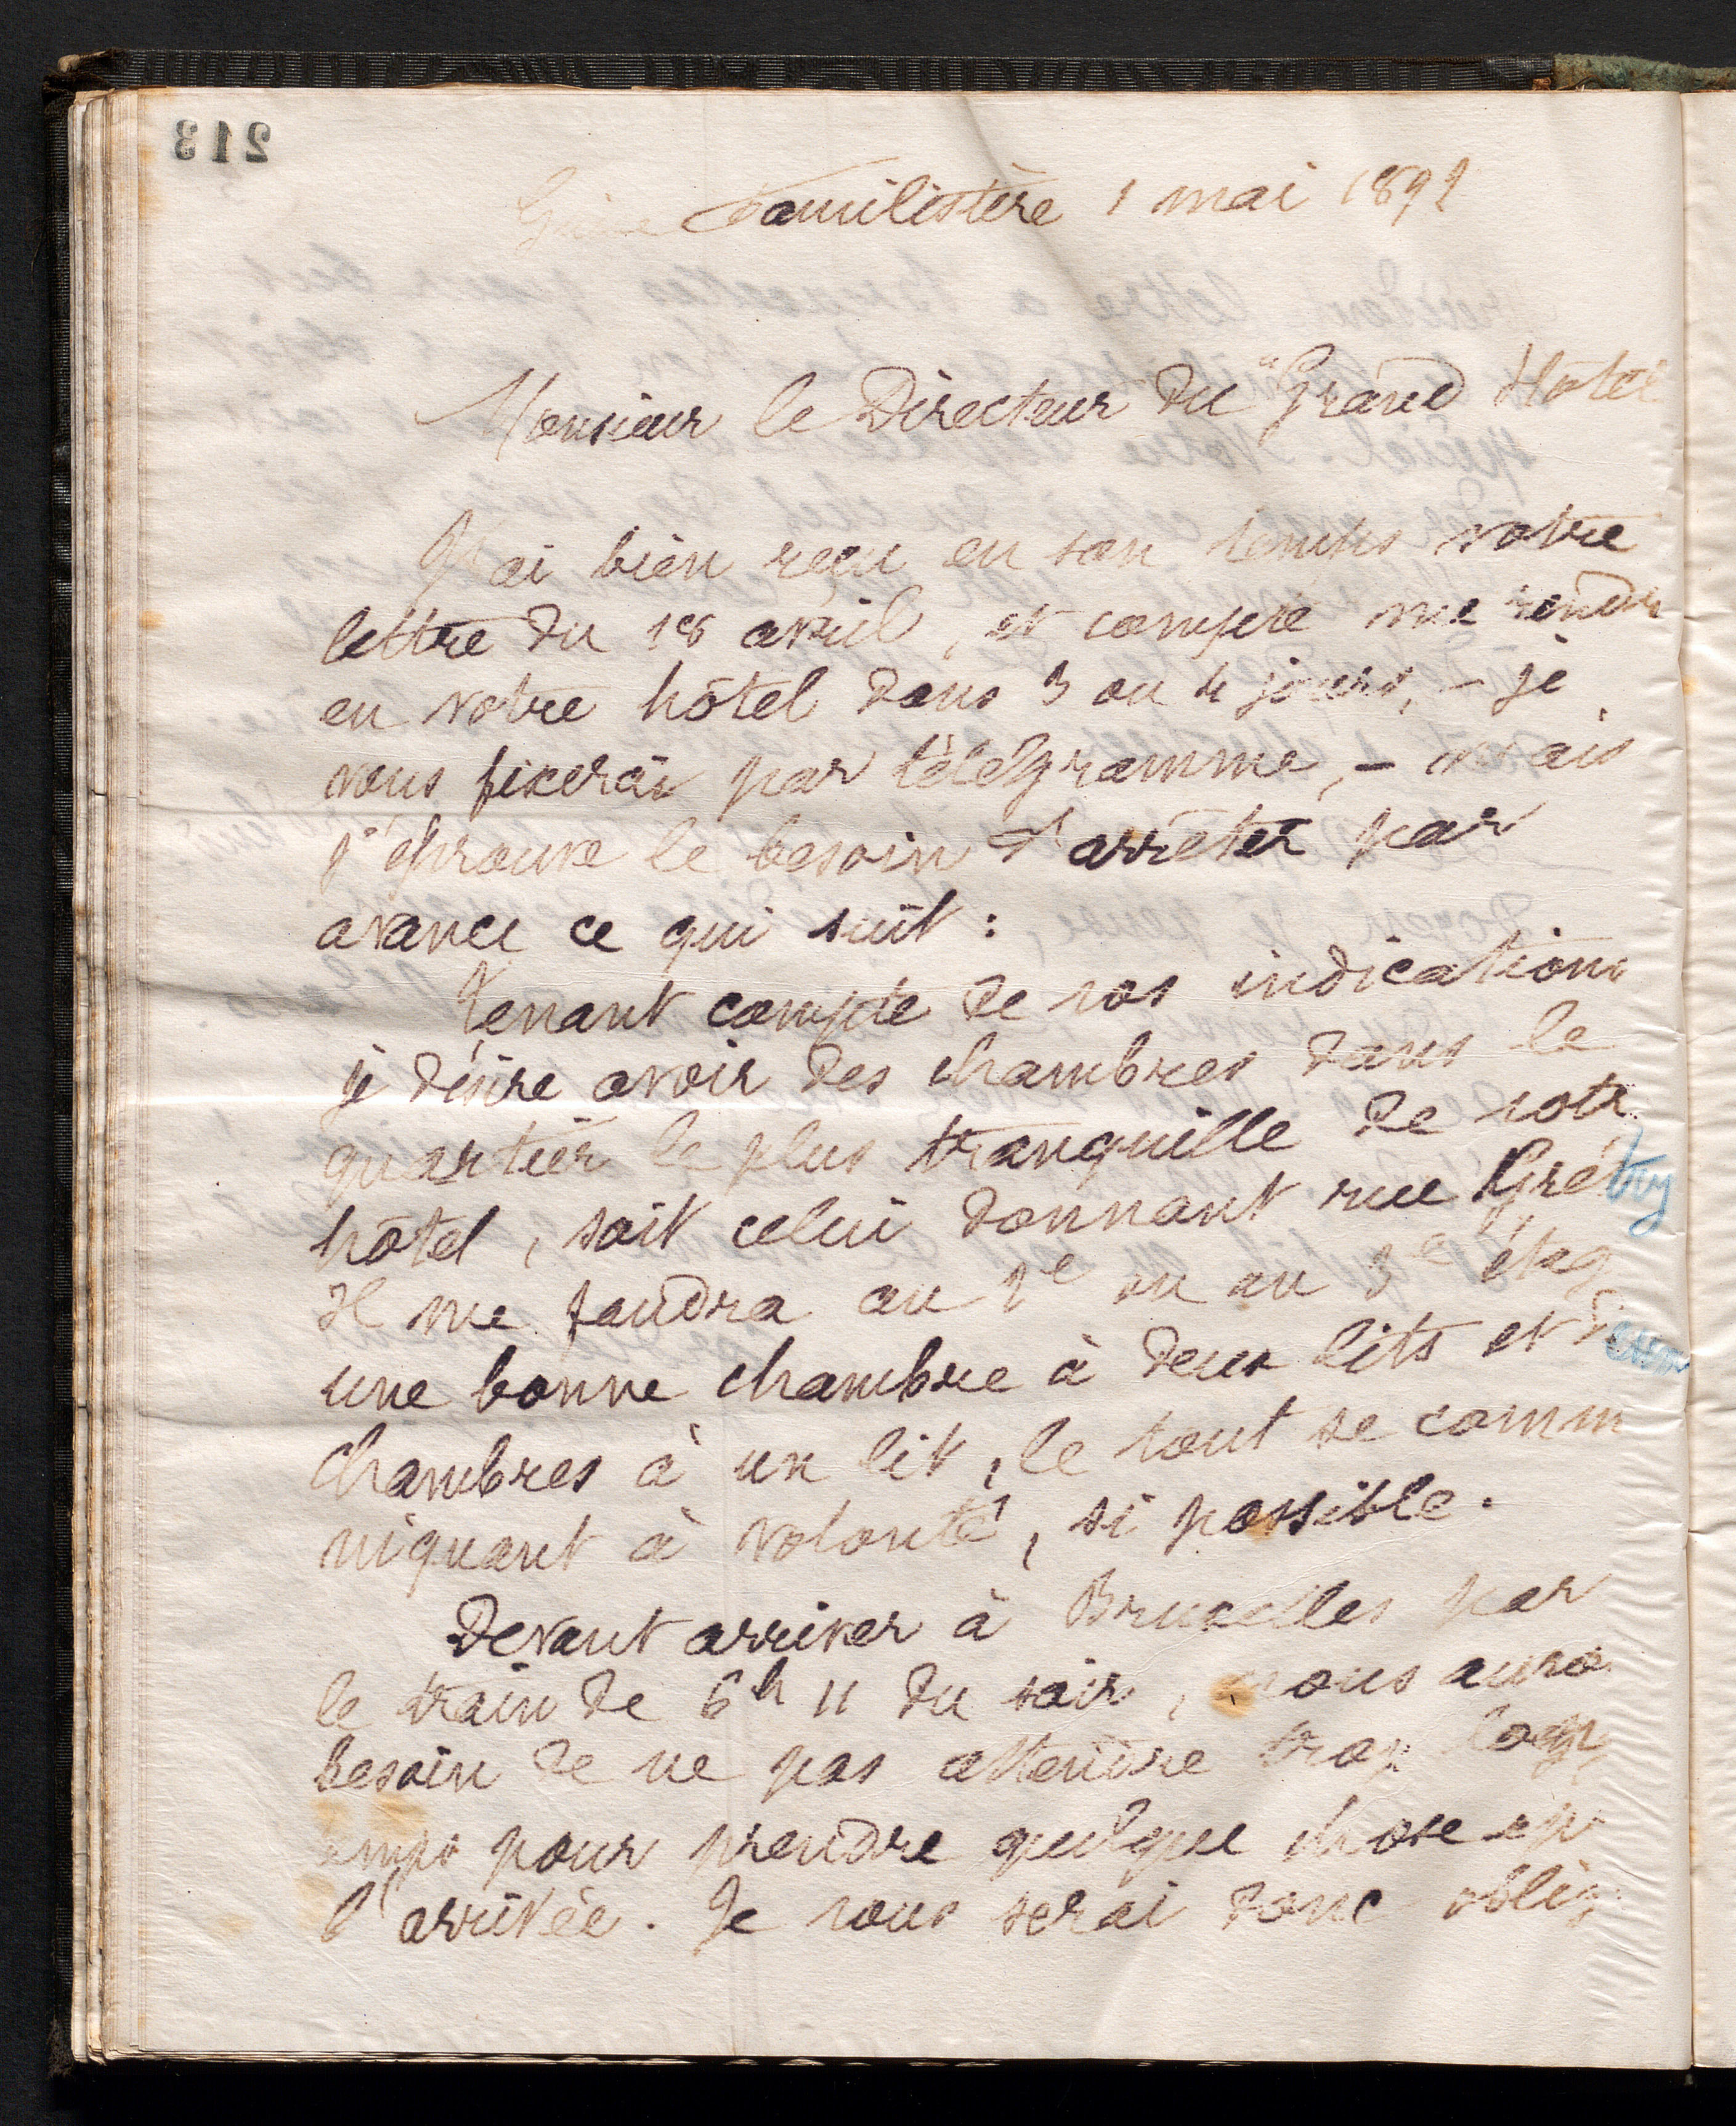 213
Guise Familistère 1 mai 1891
Monsieur le Directeur du "Grand Hôtel
J'ai bien reçu en son temps votre
lettre du 18 avril, et compte me rendre
en votre hôtel dans 3 ou 4 jours, – je
vous fixerai par télégramme, – mais
j'éprouve le besoin d'arrêter par
avance ce qui suit :
Tenant compte de vos indications
je désire avoir des chambres dans le
quartier le plus tranquille de votr
hôtel, soit celui donnant rue Grétry
Il me faudra au 2e ou au 3e étag
une bonne chambre à deux lits et
chambres à un lit, le tout se comm
niquant à volonté, si possible.
Devant arriver à Bruxelles par
le train de 6h 11 du soir, nous auro
besoin de ne pas attendre trop long
emps pour prendre quelque chose
l'arrivée. Je vous serai donc oblig